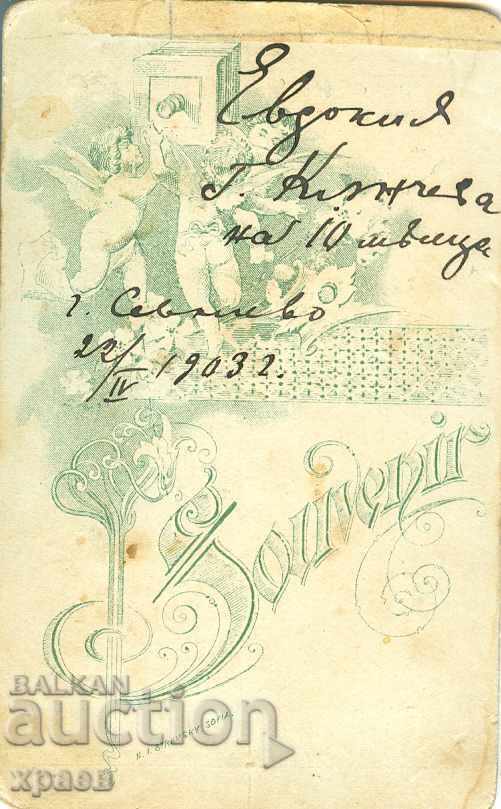 Евдокия
Г.
на 10 мѣсеца
г. Севлиево
22/IV 1903 г.
Souvenir
SOFIA.
BALKAN
auction
храов